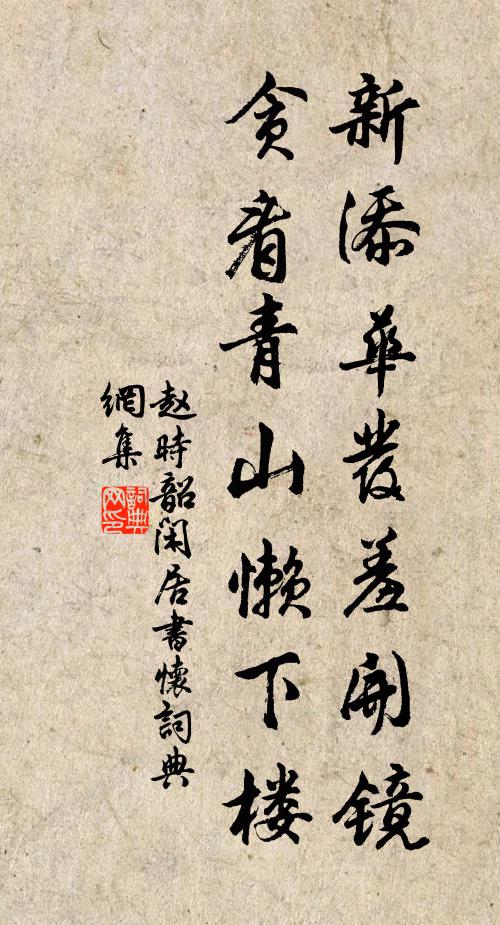 新添華發羞開鏡
貪看青山懒下楼
赵時韶闲居書懷詞典
網集
詞典
网印